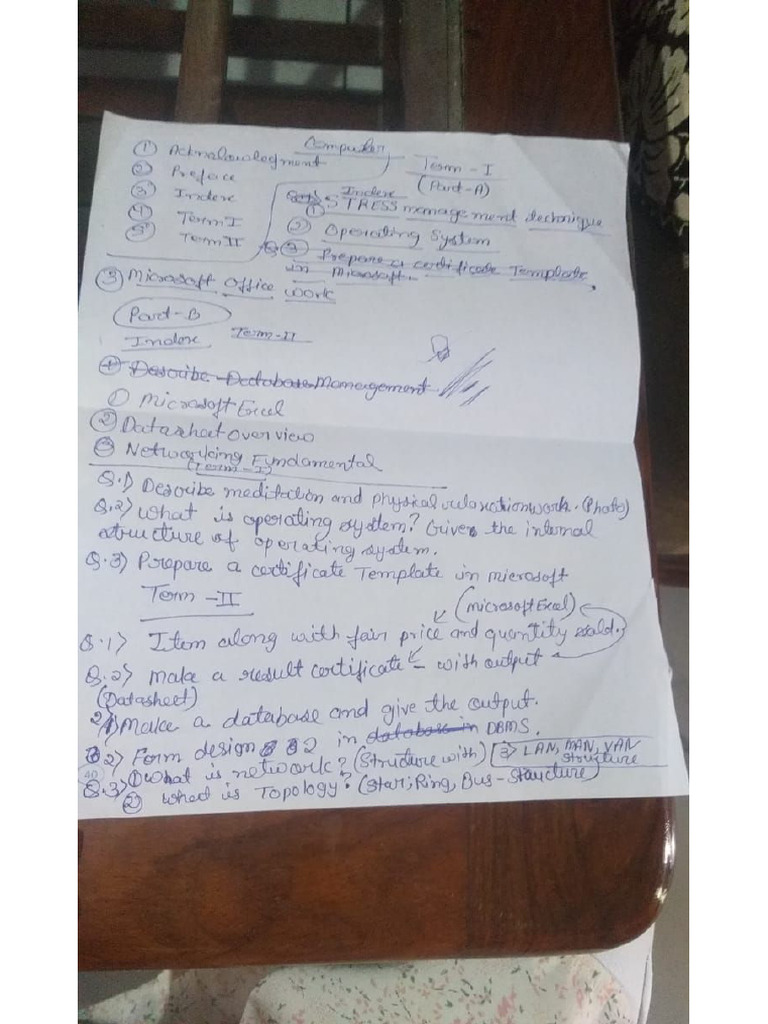 Computer
① Acknowledgment
② Preface
③ Index
④ Term I
⑤ Term II
Term - I
(Part-A)
Index
① STRESS management technique
② Operating System
③ Prepare a certificate Template
in Microsoft.
③ Microsoft Office work
Part-B
Index Term-II
① Describe Database Management
① Microsoft Excel
② Datasheet overview
③ Networking Fundamental
(Term-I)
Q.1) Describe meditation and physical relaxation work. (Photo)
Q.2) What is operating system? Give the internal
structure of operating system.
Q.3) Prepare a certificate Template in microsoft
Term - II
(microsoft Excel)
Q.1) Item along with fair price and quantity sold.
Q.2) Make a result certificate - with output
(Datasheet)
2) 1) Make a database and give the output.
2) Form design 2 in database in DBMS.
Q.3) ① What is network? (Structure with) 3) LAN, MAN, VAN
structure
40
② Whed is Topology? (Star, Ring, Bus - Structure)